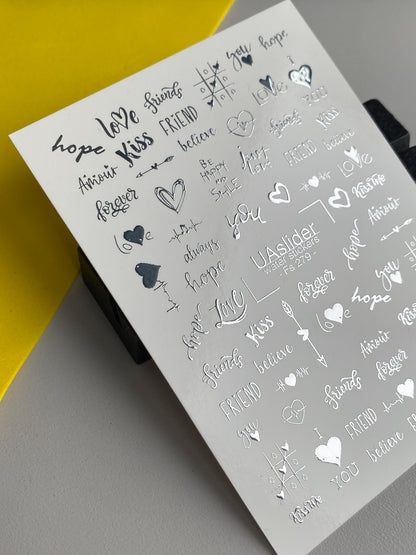 you
hope
love
friends
hope
Kiss
FRIEND
love
I
Amour
believe
friends
Kiss
forever
BE
HAPPY
and
SMILE
FRIEND
believe
love
you
love
Kiss me
always
UAslider
water stickers
- Fe 279 -
hope
Amour
hope
LOVE
forever
hope
you
hope
Kiss
friends
believe
love
Amour
FRIEND
friends
forever
you
I
FRIEND
YOU
believe
Kiss me